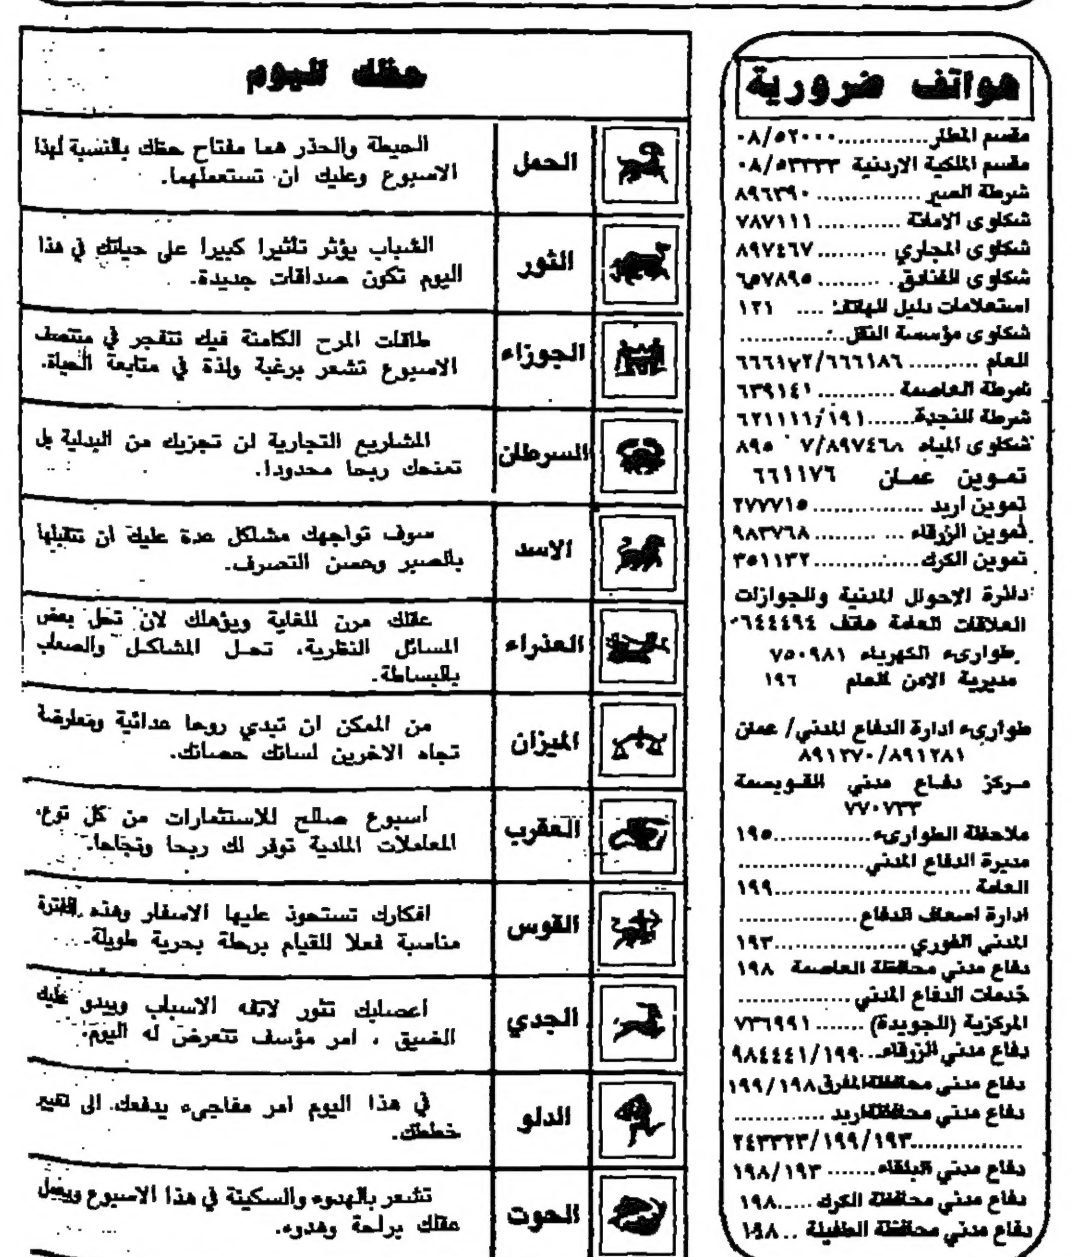 هواتف ضرورية
مقسم المطار............٠٨/٥٢٠٠٠
مقسم الملكية الاردنية ٠٨/٥٣٣٣٣
شرطة السير .............. ٨٩٦٣٩٠
شكاوى الامانة ........... ٧٨٧١١١
شكاوى المجاري ......... ٨٩٧٤٦٧
شكاوى الفنادق. ......... ٦٥٧٨٩٥
استعلامات دليل الهاتف .... ١٢١
شكاوى مؤسسة النقل............
العام .......... ٦٦٦١٧٢/٦٦٦١٨٦
شرطة العاصمة ........... ٦٣٩١٤١
شرطة النجدة.......٦٢١١١١/١٩١
شكاوى المياه ٧/٨٩٧٤٦٨ ٨٩٥
تموين عمان ٦٦١١٧٦
تموين اربد ................ ٢٧٧٧١٥
تموين الزرقاء ... ......... ٩٨٣٧٦٨
تموين الكرك............... ٣٥١١٣٢
دائرة الاحوال المدنية والجوازات
العلاقات العامة هاتف ٦٤٤٤٩٤
طوارىء الكهرباء ٧٥٠٩٨١
مديرية الامن العام ١٩٦
طوارىء ادارة الدفاع المدني/ عمان
٨٩١٢٧٠/٨٩١٢٨١
مركز دفاع مدني القويسمة
٧٧٠٧٣٣
ملاحظة الطوارىء............١٩٥
مديرة الدفاع المدني.................
العامة ........................١٩٩
ادارة اسعاف الدفاع.................
المدني الفوري ................١٩٣
دفاع مدني محافظة العاصمة ١٩٨
خدمات الدفاع المدني.................
المركزية (الجويدة) ....... ٧٣٦٩٩١
دفاع مدني الزرقاء...٩٨٤٤٤١/١٩٩
دفاع مدني محافظة المفرق١٩٩/١٩٨
دفاع مدني محافظة اربد .............
..............٢٤٣٣٢٣/١٩٩/١٩٣
دفاع مدني البلقاء....... ١٩٨/١٩٣
دفاع مدني محافظة الكرك .....١٩٨
دفاع مدني محافظة الطفيلة .. ١٩٨
حظك اليوم
الحمل
الحيطة والحذر هما مفتاح حظك بالنسبة لهذا
الاسبوع وعليك ان تستعملهما.
الثور
الشباب يؤثر تأثيرا كبيرا على حياتك في هذا
اليوم تكون صداقات جديدة.
الجوزاء
طاقات المرح الكامنة فيك تتفجر في منتصف
الاسبوع تشعر برغبة ولذة في متابعة الحياة.
السرطان
المشاريع التجارية لن تجزيك من البداية بل
تمنحك ربحا محدودا.
الاسد
سوف تواجهك مشاكل عدة عليك ان تتقبلها
بالصبر وحسن التصرف.
العذراء
عقلك مرن للغاية ويؤهلك لان تحل بعض
المسائل النظرية، تحل المشاكل والصعاب
بالبساطة.
الميزان
من الممكن ان تبدي روحا عدائية ومعارضة
تجاه الاخرين لسانك حصانك.
العقرب
اسبوع صالح للاستثمارات من كل نوع،
المعاملات المادية توفر لك ربحا ونجاحا.
القوس
افكارك تستحوذ عليها الاسفار وهذه الفترة
مناسبة فعلا للقيام برحلة بحرية طويلة.
الجدي
اعصابك تثور لاتفه الاسباب ويبدو عليك
الضيق ، امر مؤسف تتعرض له اليوم.
الدلو
في هذا اليوم امر مفاجىء يدفعك الى تغيير
خططك.
الحوت
تشعر بالهدوء والسكينة في هذا الاسبوع ويعمل
عقلك براحة وهدوء.